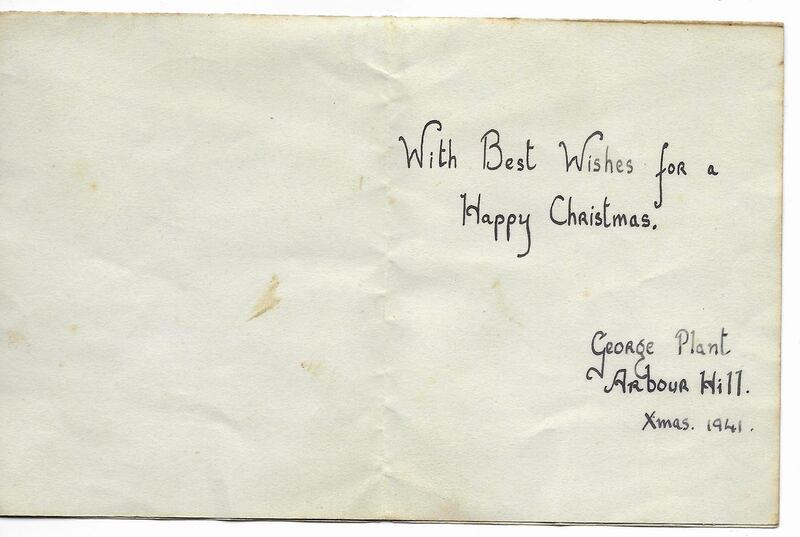 With Best Wishes for a
Happy Christmas.
George Plant
Arbour Hill.
Xmas. 1941.